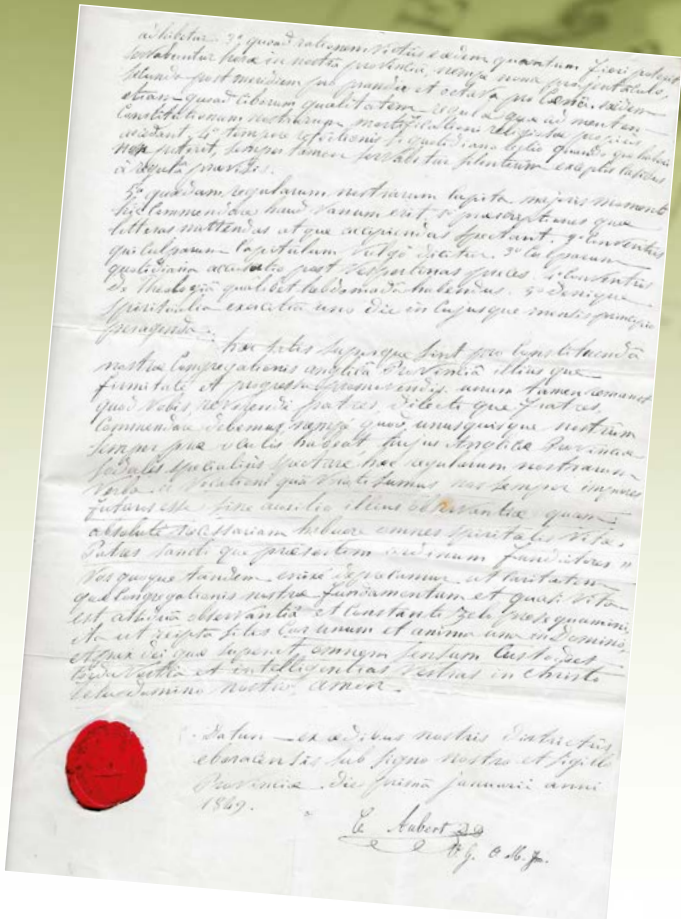 adhibetur. 3° quoad rationem victus eaedem quantum fieri poterit
servabuntur horae in nostra provincia, nempe nona pro jentaculo,
secunda post meridiem pro prandio et octava pro coena. eadem
etiam quoad ciborum qualitatem regula quae ad mentem
Constitutionum nostrarum mortificationi religiosae propius
accedant, 4° tempore refectionis si quotidiana lectio quandoque haberi
non poterit, semper tamen servabitur silentium exceptis casibus
a regula praevisis.
5° quaedam regularum nostrarum capita majoris momenti
hic commendare haud vanum erit, 1° praescriptiones quae
litteras mittendas atque accipiendas spectant. 2° Conventus
qui culparum Capitulum vulgo dicitur. 3° Culparum
quotidiana accusatio post vespertinas preces. 4° Conventus
de theologia qualibet hebdomada habendus. 5° denique
spiritualia exercitia uno die in cujusque mensis principio
peragenda.
haec satis superque sint pro constituenda
nostrae Congregationis anglica Provincia illius que
firmitate et progressu promovendis. unum tamen remanet
quod vobis, reverendi patres, dilecti que fratres,
Commendare debemus, nempe quod unusquisque nostrum
semper prae oculis habeat hujus Anglicae Provinciae
sodales specialius spectare haec regularum nostrarum
verba " vocationi qua vocati sumus nos semper impares
futuros esse sine auxilio illius observantiae quam
absolute necessariam habuere omnes spiritualis vitae
Patres sancti que praesertim ordinum fundatores "
Vos quoque tandem enixe deprecamur ut caritatem
quae Congregationis nostrae fundamentum et quasi vita
est assidua observantia et constanti zelo prosequamini,
ita ut scripto sitis cor unum et anima una in Domino,
et pax dei quae superat omnem sensum custodiet
corda vestra et intelligentias vestras in Christo
Jesu domino nostro amen.
Datum ex aedibus nostris districtus
eboracensis sub signo nostro et sigillo
Provinciae die prima januarii anni
1849.
C Aubert
V. G. O.M.J.